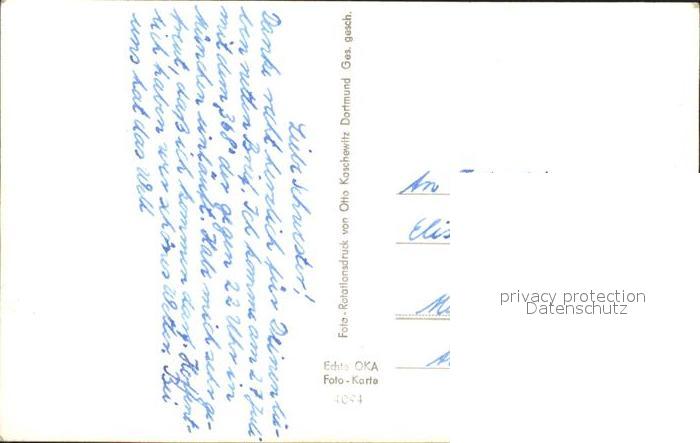 Liebe Schwester!
Danke recht herzlich für Deinen lie-
ben netten Brief. Ich komme am 27. Juli
mit dem 368 der gegen 22 Uhr in
München einläuft. Habe mich sehr ge-
freut, daß ich kommen darf. Hoffent-
lich haben wir schönes Wetter. Bei
uns hat das
Foto-Rotationsdruck von Otto Kaschewitz Dortmund Ges. gesch.
Echte OKA
Foto-Karte
4094
An
Elis
privacy protection
Datenschutz